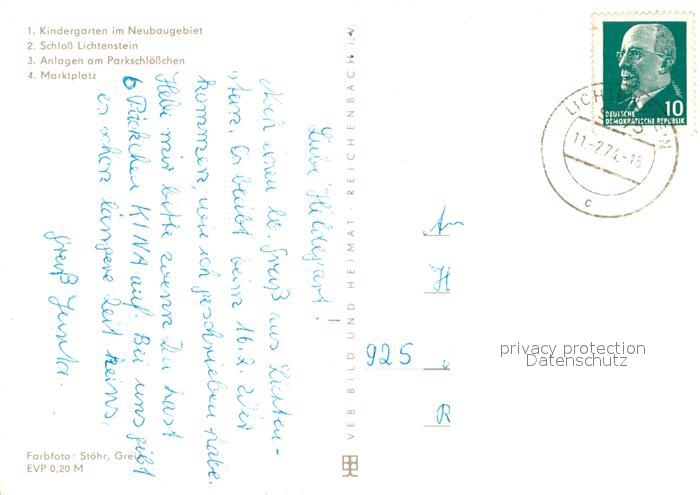 1. Kindergarten im Neubaugebiet
2. Schloß Lichtenstein
3. Anlagen am Parkschlößchen
4. Marktplatz
Liebe Hildegart!
Noch einen lb. Gruß aus Lichten-
stein. Es bleibt beim 16.2. Wir
kommen, wie ich geschrieben habe.
Hebe mir bitte wenn Du hast
6 Päckchen KINA auf. Bei uns gibt
es schon längere Zeit keins.
Gruß Junta.
Farbfoto: Stöhr, Greiz
EVP 0,20 M
VEB BILD UND HEIMAT REICHENBACH i.V.
10
DEUTSCHE
DEMOKRATISCHE REPUBLIK
LICHTENSTEIN
11.-2.74.-18
c
An
H
925
R
privacy protection
Datenschutz